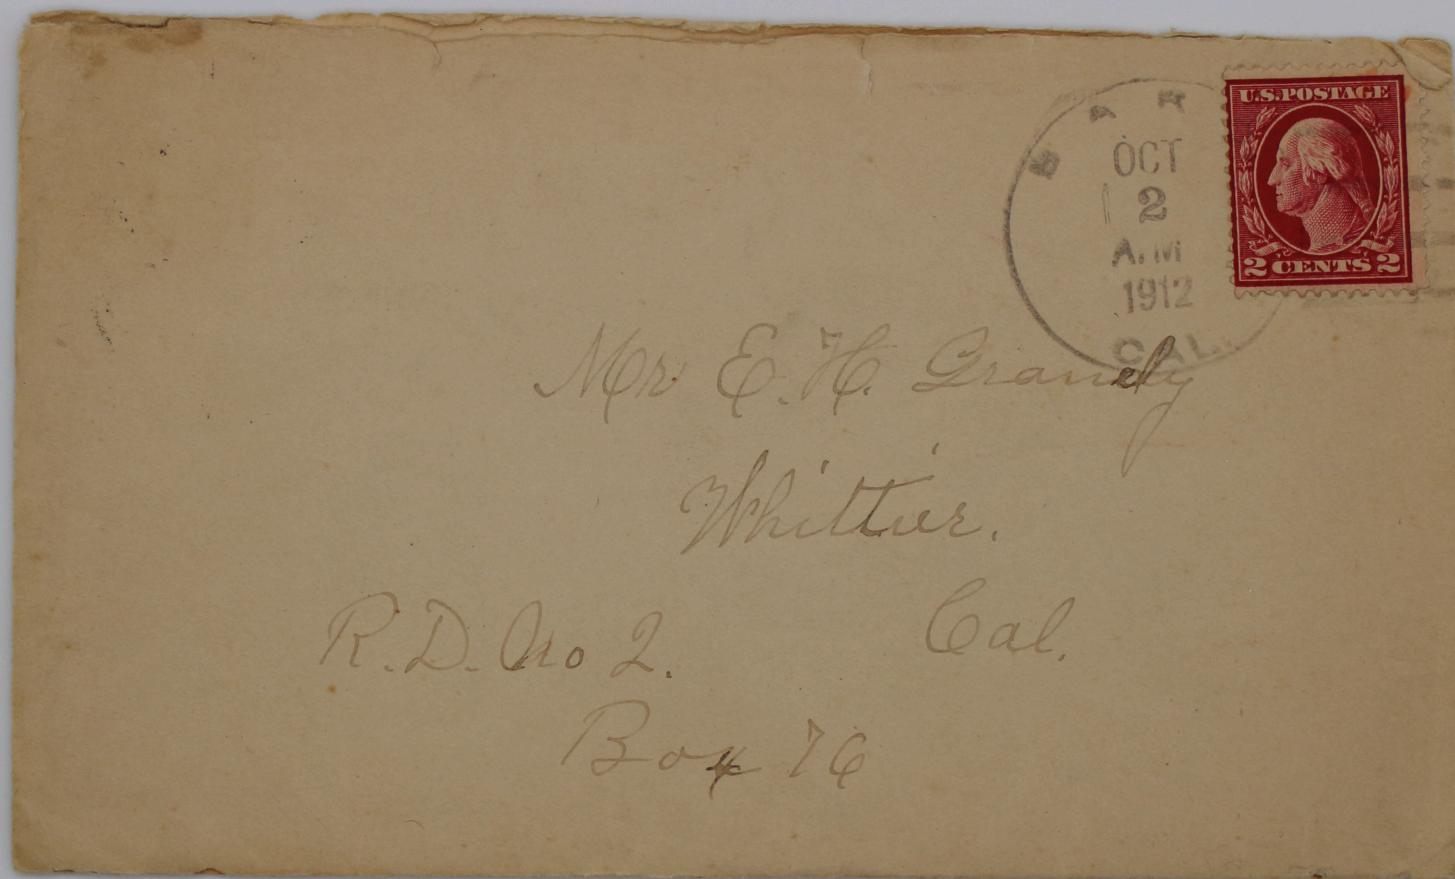 OCT
2
A.M
1912
CAL.
U.S. POSTAGE
2 CENTS 2
Mr E. H. Grandy
Whittier.
Cal.
R.D. No 2.
Box 76